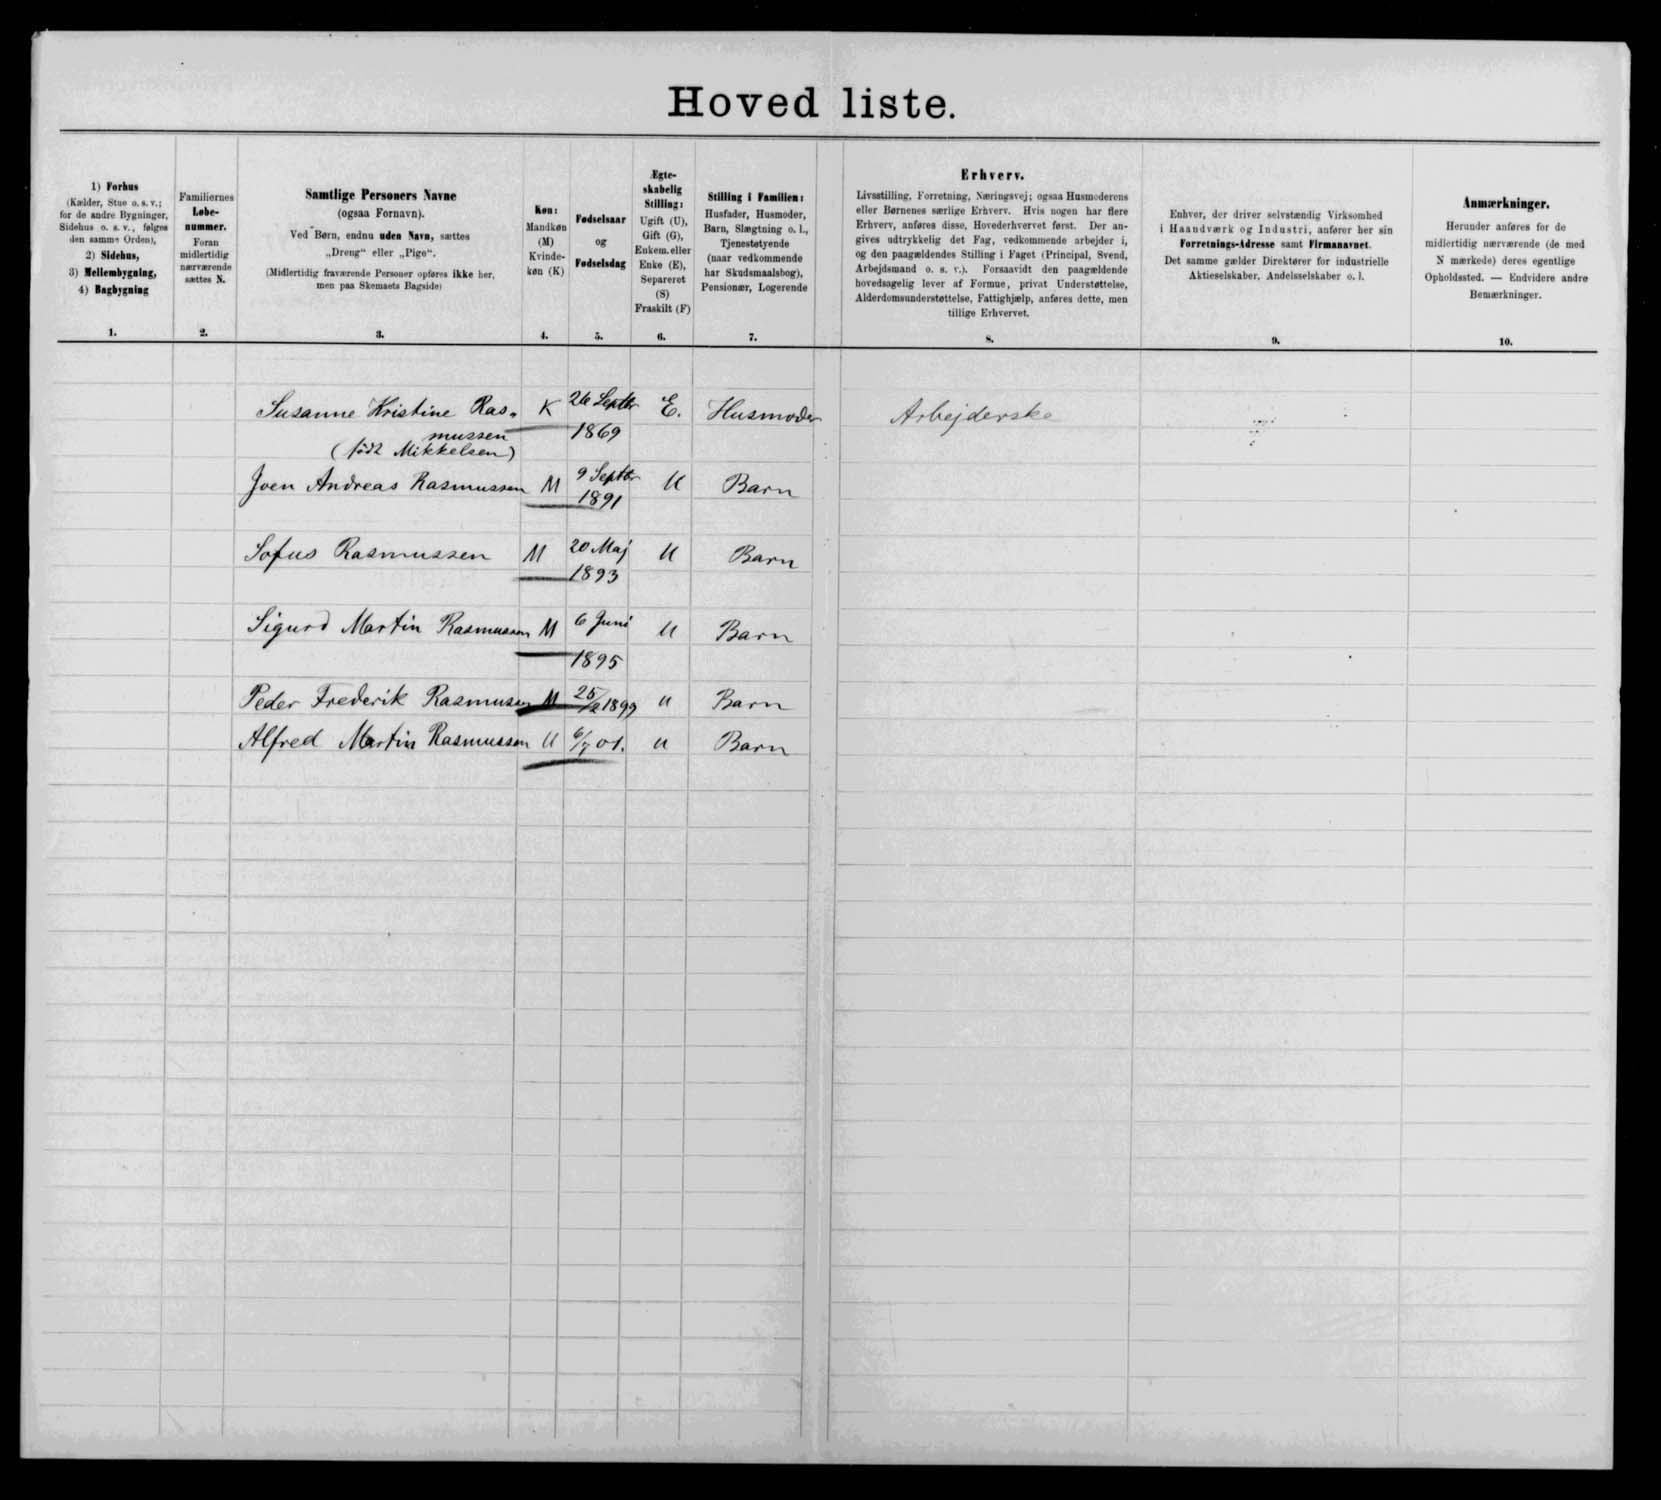 Hoved liste.
1) Forhus
(Kælder, Stue o. s. v.;
for de andre Bygninger,
Sidehus o. s. v., følges
den samme Orden),
2) Sidehus,
3) Mellembygning,
4) Bagbygning
1.
Familiernes
Løbe-
nummer.
Foran
midlertidig
nærværende
sættes N.
2.
Samtlige Personers Navne
(ogsaa Fornavn).
Ved Børn, endnu uden Navn, sættes
„Dreng“ eller „Pige“.
(Midlertidig fraværende Personer opføres ikke her,
men paa Skemaets Bagside)
3.
Køn:
Mandkøn
(M)
Kvinde-
køn (K)
4.
Fødselsaar
og
Fødselsdag
5.
Ægte-
skabelig
Stilling:
Ugift (U),
Gift (G),
Enkem. eller
Enke (E),
Separeret
(S)
Fraskilt (F)
6.
Stilling i Familien:
Husfader, Husmoder,
Barn, Slægtning o. l.,
Tjenestetyende
(naar vedkommende
har Skudsmaalsbog),
Pensionær, Logerende
7.
Erhverv.
Livsstilling, Forretning, Næringsvej; ogsaa Husmoderens
eller Børnenes særlige Erhverv. Hvis nogen har flere
Erhverv, anføres disse, Hovederhvervet først. Der an-
gives udtrykkelig det Fag, vedkommende arbejder i,
og den paagældendes Stilling i Faget (Principal, Svend,
Arbejdsmand o. s. v.). Forsaavidt den paagældende
hovedsagelig lever af Formue, privat Understøttelse,
Alderdomsunderstøttelse, Fattighjælp, anføres dette, men
tillige Erhvervet.
8.
Enhver, der driver selvstændig Virksomhed
i Haandværk og Industri, anfører her sin
Forretnings-Adresse samt Firmanavnet.
Det samme gælder Direktører for industrielle
Aktieselskaber, Andelsselskaber o. l.
9.
Anmærkninger.
Herunder anføres for de
midlertidig nærværende (de med
N mærkede) deres egentlige
Opholdssted. — Endvidere andre
Bemærkninger.
10.
Susanne Kristine Ras- K 26 Septbr E. Husmoder Arbejderske
mussen 1869
(født Mikkelsen)
Joen Andreas Rasmussen M 9 Septbr U Barn
1891
Sofus Rasmussen M 20 Maj U Barn
1893
Sigurd Martin Rasmussen M 6 Juni U Barn
1895
Peder Frederik Rasmussen M 25/2 1899 U Barn
Alfred Martin Rasmussen U 6/7 01. U Barn